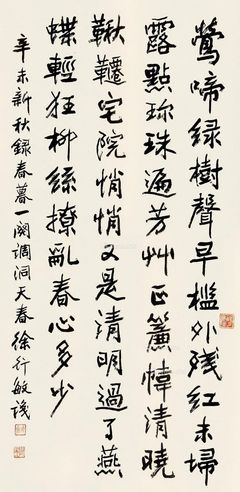 莺啼绿樹聲早槛外残红未埽
露點珎珠遍芳艸正簾幃清曉
鞦韆宅院悄悄又是清明過了燕
蝶輕狂柳絲撩亂春心多少
辛未新秋録春暮一阕调洞天春徐行敏識